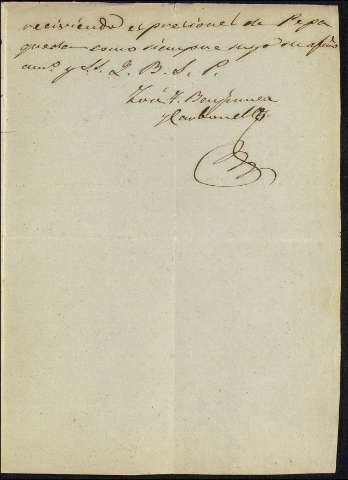 reciviendo espresiones de Pepa
queda como siempre suyo su afmo
amº y S.S. Q. B. S. P.
José
y Carbonell